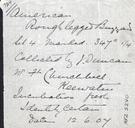 American
Rough legged Buzzard
Set 4 marked 347 1/4
Collected by J. Duncan
W. H. Churchbell
Keewatin
Incubation fresh
Identity Certain
Date 12.6.07